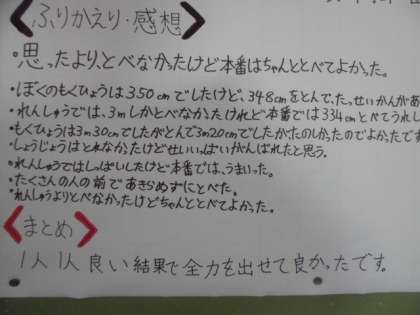 ふりかえり・感想
・思ったより、とべなかったけど本番はちゃんととべてよかった。
・ぼくのもくひょうは350cmでしたけど、348cmをとんで、たっせいかんがあ
・れんしゅうでは、3mしかとべなかったけれど本番では334cmとべてうれし
・もくひょうは3m30cmでしたがとんで3m20cmでしたがたのしかったのでよかったです
・しょうじょうはとれなかったけどせいいっぱいがんばれたと思う。
・れんしゅうではしっぱいしたけど本番では、うまいった。
・たくさんの人の前であきらめずにとべた。
・れんしゅうよりとべなかったけどちゃんととべてよかった。
まとめ
1人1人良い結果で全力を出せて良かったです。